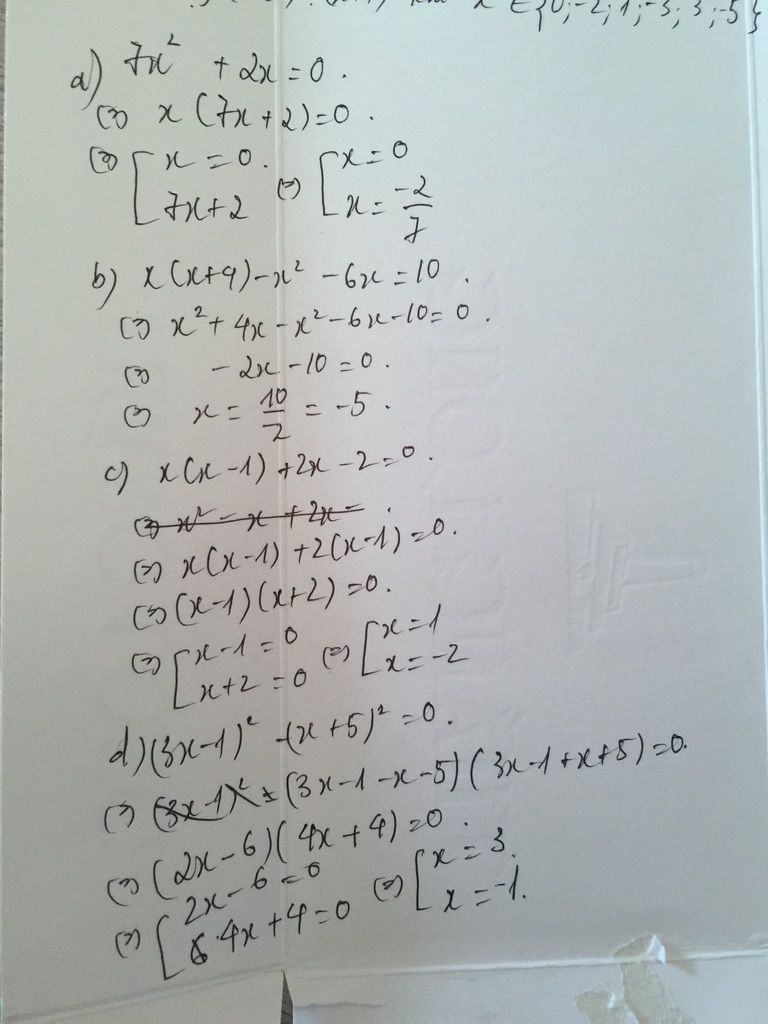 x ∈ {0; -2; 1; -3; 3; -5}
a) 7x² + 2x = 0.
(=) x (7x + 2) = 0.
(=) [ x = 0. (=) [ x = 0
7x + 2 x = -2/7
b) x(x+4) - x² - 6x = 10.
(=) x² + 4x - x² - 6x - 10 = 0.
(=) - 2x - 10 = 0.
(=) x = 10/-2 = -5.
c) x(x - 1) + 2x - 2 = 0.
(=) x² - x + 2x -
(=) x(x - 1) + 2(x - 1) = 0.
(=) (x - 1)(x + 2) = 0.
(=) [ x - 1 = 0 (=) [ x = 1
x + 2 = 0 x = -2
d) (3x - 1)² - (x + 5)² = 0.
(=) (3x - 1)² ± (3x - 1 - x - 5)(3x - 1 + x + 5) = 0.
(=) (2x - 6)(4x + 4) = 0.
(=) [ 2x - 6 = 0 (=) [ x = 3.
4x + 4 = 0 x = -1.